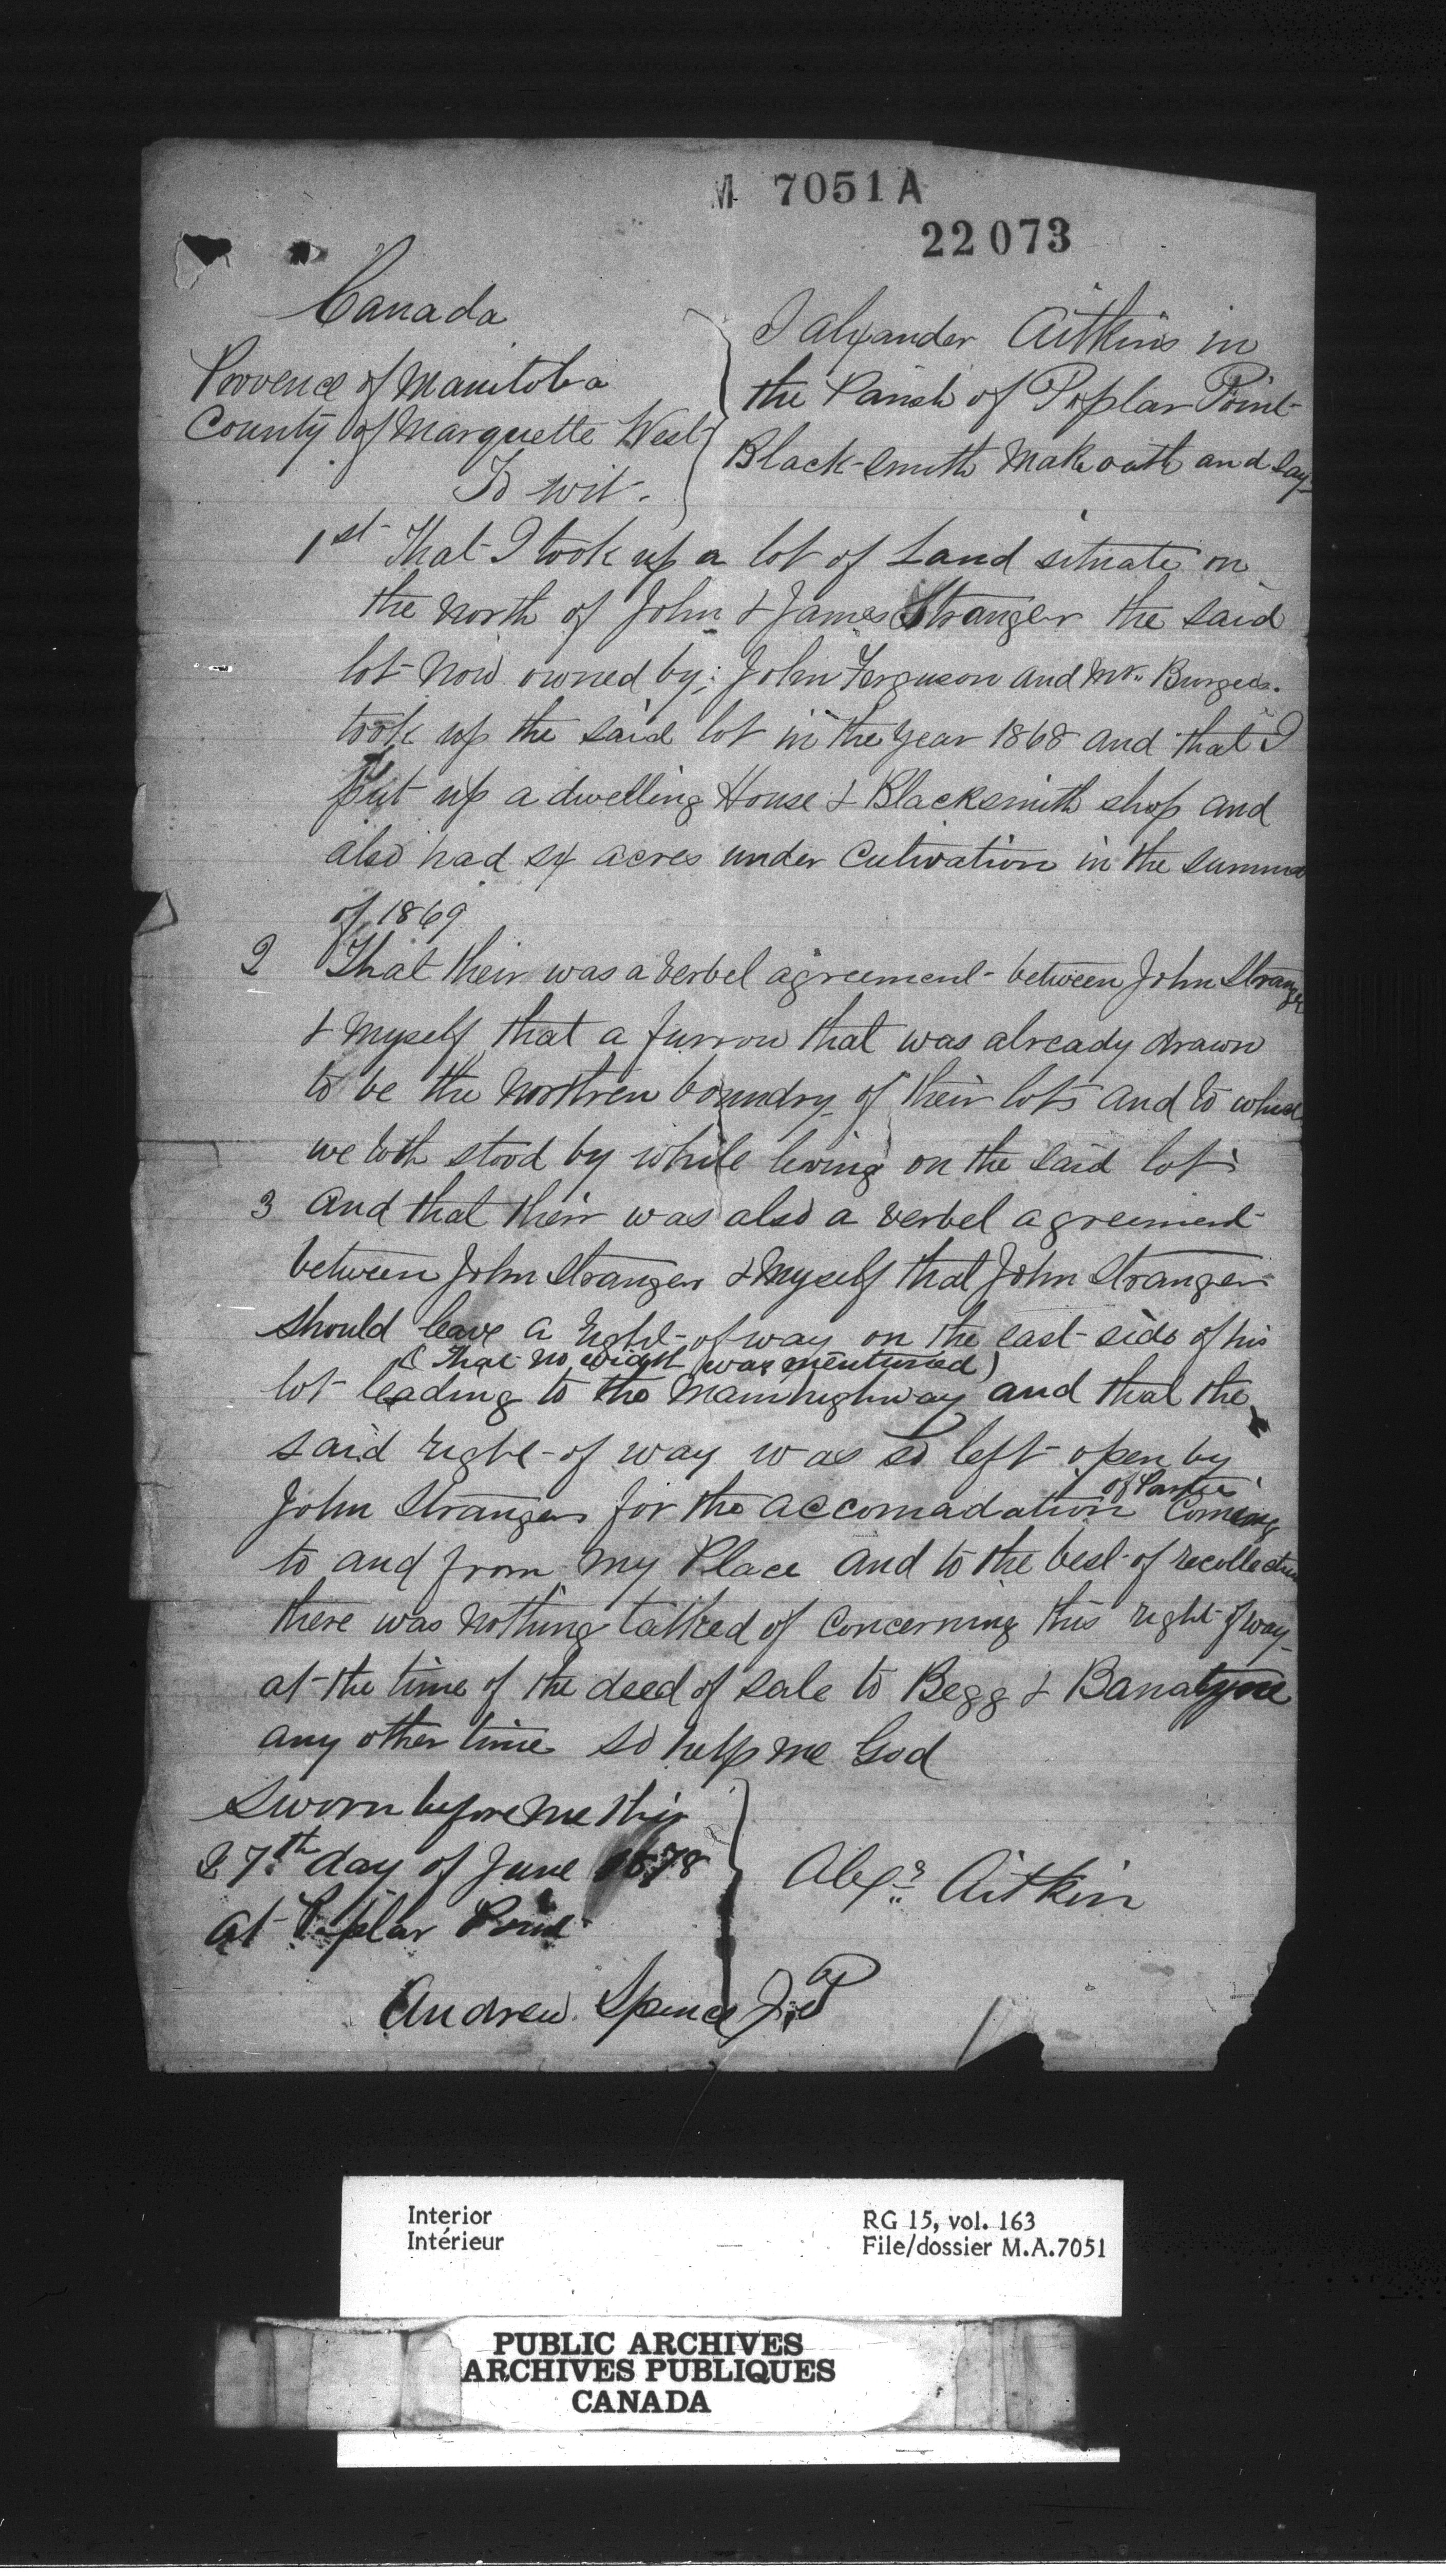 M 7051 A
22073
Canada
Provence of Manitoba
County of Marquette West
To wit.
I Alexander Aitkins in
the Parish of Poplar Point
Black-smith Make oath and say
1st That I took up a lot of Land situate on
the North of John & James Stranger the said
lot now owned by; John Ferguson and Mr. Burgess.
took up the said lot in the year 1868 and that I
put up a dwelling House & Blacksmith shop and
also had six acres under Cultivation in the summer
of 1869
2 That their was a verbel agreement between John Stranger
& Myself that a furrow that was already drawn
to be the Northren boundry of their lots and to which
we both stood by while living on the said lots
3 And that their was also a verbel agreement
between John Stranger & Myself that John Stranger
should leave a right-of way on the east side of his
( That no width was mentioned )
lot leading to the Main highway and that the
said right-of way was so left open by
John Stranger for the accomadation of Parties Coming
to and from My Place and to the best of recollection
there was Nothing talked of Concerning this right of way
at the time of the deed of sale to Begg & Banatyne
any other time so help me God
Sworn before me this
27th day of June 1878
at Poplar Point
Alexr Aitkin
Andrew Spence J.P
Interior
Intérieur
RG 15, vol. 163
File/dossier M.A.7051
PUBLIC ARCHIVES
ARCHIVES PUBLIQUES
CANADA